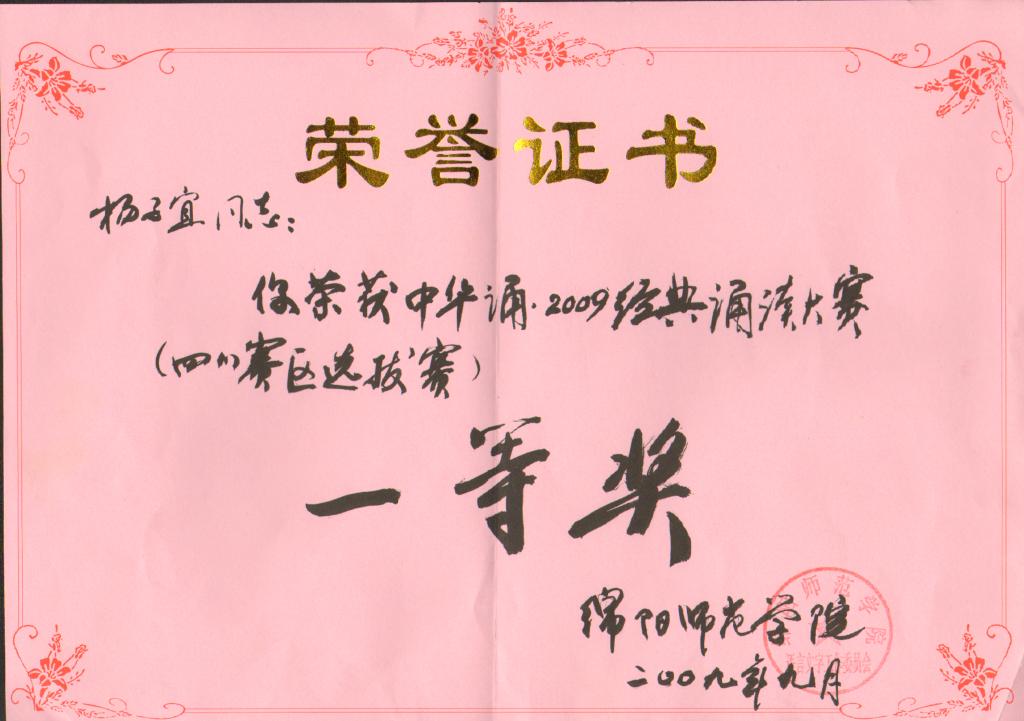 荣誉证书
杨子宜同志：
你荣获中华诵·2009经典诵读大赛
（四川赛区选拔赛）
一等奖
绵阳师范学院
二00九年九月
师范学院
语言文字工作委员会